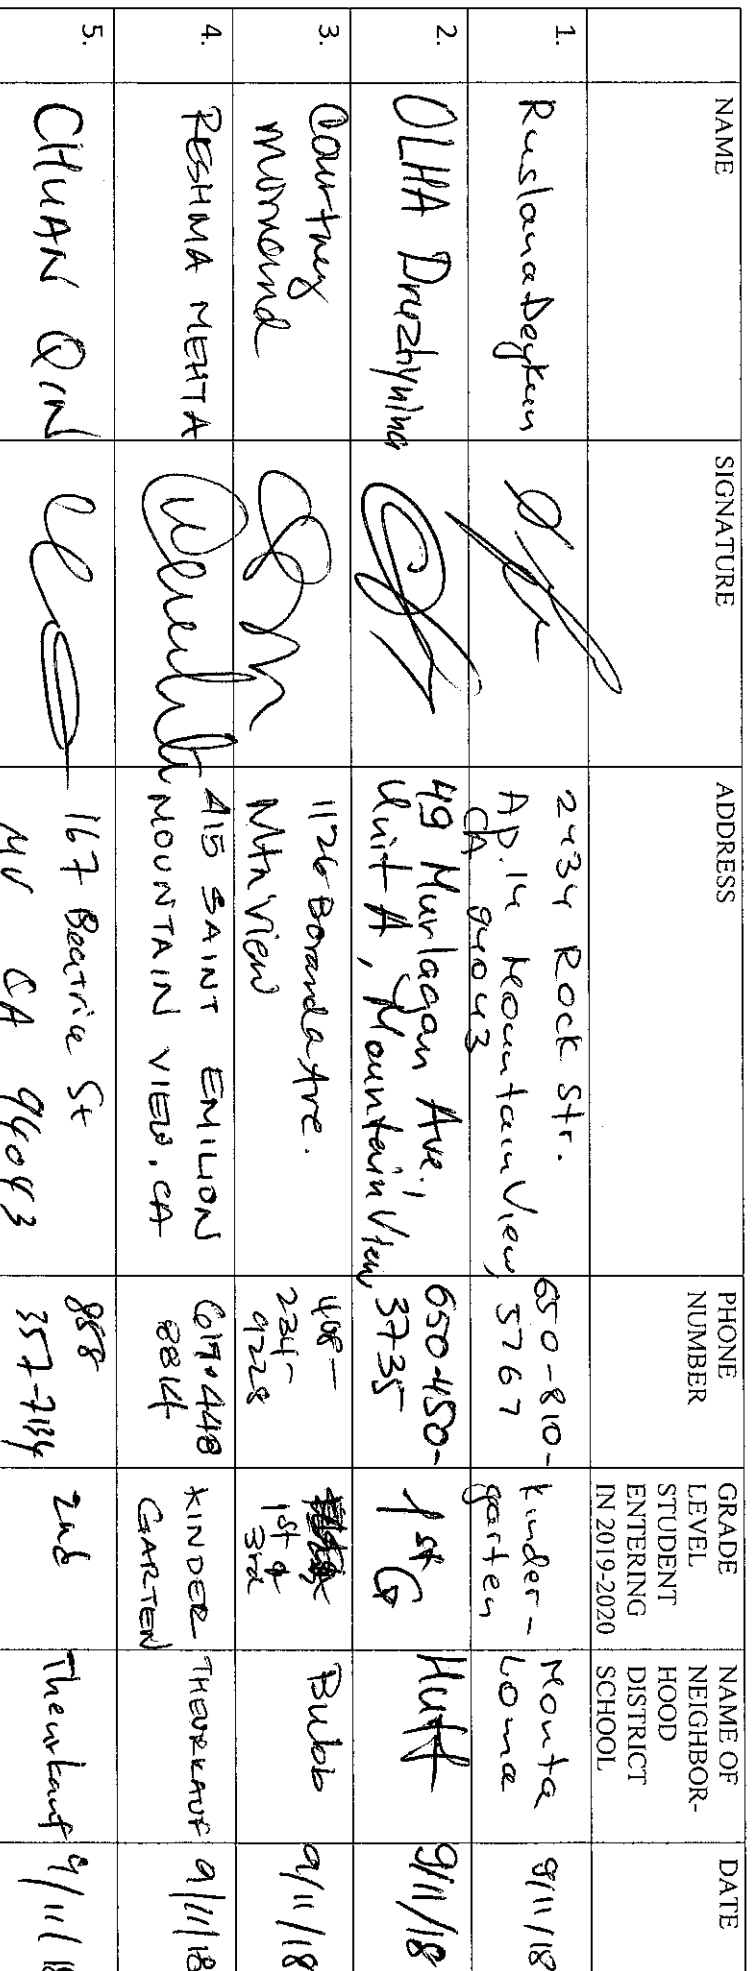 NAME
SIGNATURE
ADDRESS
PHONE
NUMBER
GRADE
LEVEL
STUDENT
ENTERING
IN 2019-2020
NAME OF
NEIGHBOR-
HOOD
DISTRICT
SCHOOL
DATE
1.
Ruslana Deykun
2434 Rock Str.
Ap. 14 Mountain View,
CA 94043
650-810-
5767
Kinder-
garten
Monta
Loma
9/11/18
2.
OLHA Druzhynina
49 Murlagan Ave.,
Unit A, Mountain View,
650-450-
3735
1st G
Huff
9/11/18
3.
Courtney
1126 Boranda Ave.
Mtn View
408-
234-
9228
1st &
3rd
Bubb
9/11/18
4.
RESHMA MEHTA
415 SAINT EMILION
MOUNTAIN VIEW, CA
617-448
8814
KINDER
GARTEN
THEUERKAUF
9/11/18
5.
CHUAN QIN
167 Beatrice St
MV CA 94043
858
357-7134
2nd
Theurkauf
9/11/18